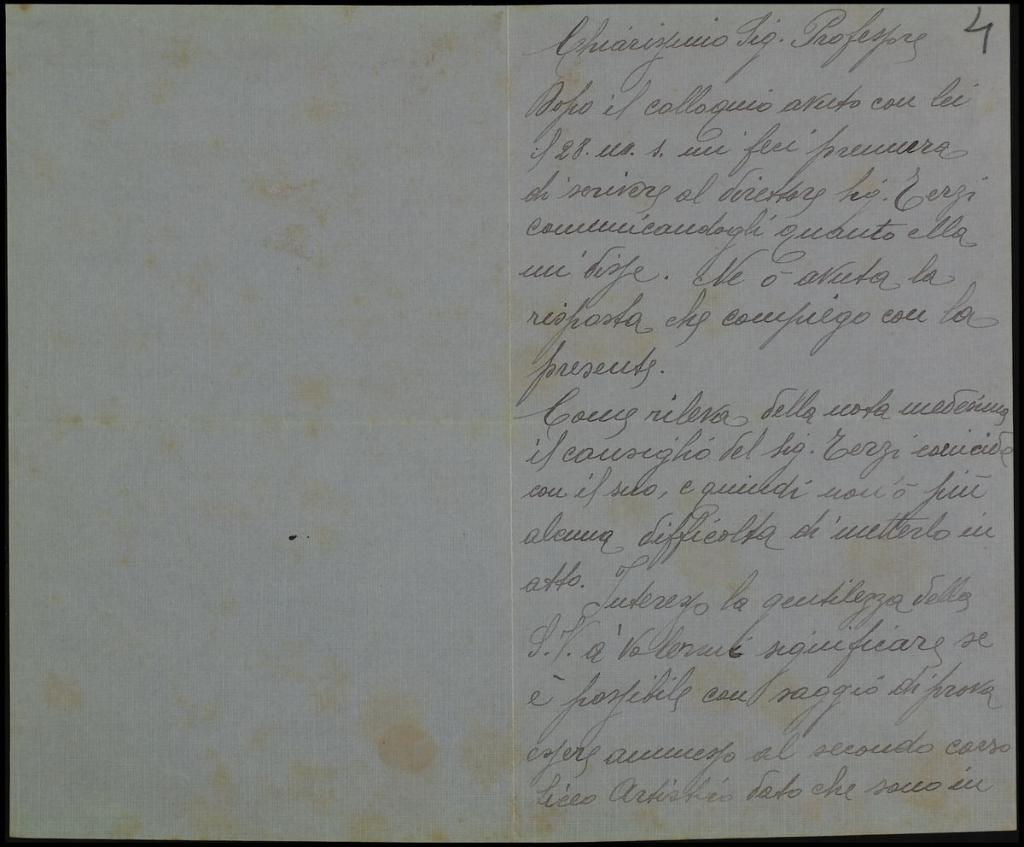 4
Chiarissimo Sig. Professore
Dopo il colloquio avuto con lei
il 28. u. s. mi feci premura
di scrivere al direttore sig. Terzi
comunicandogli quanto ella
mi disse. Ne ò avuta la
risposta che compiego con la
presente.
Come rileva della nota medesima
il consiglio del sig. Terzi coincide
con il suo, e quindi non ò più
alcuna difficoltà di metterlo in
atto. Interesso la gentilezza della
S. V. a volermi significare se
è possibile con saggio di prova
essere ammesso al secondo corso
Liceo Artistico dato che sono in